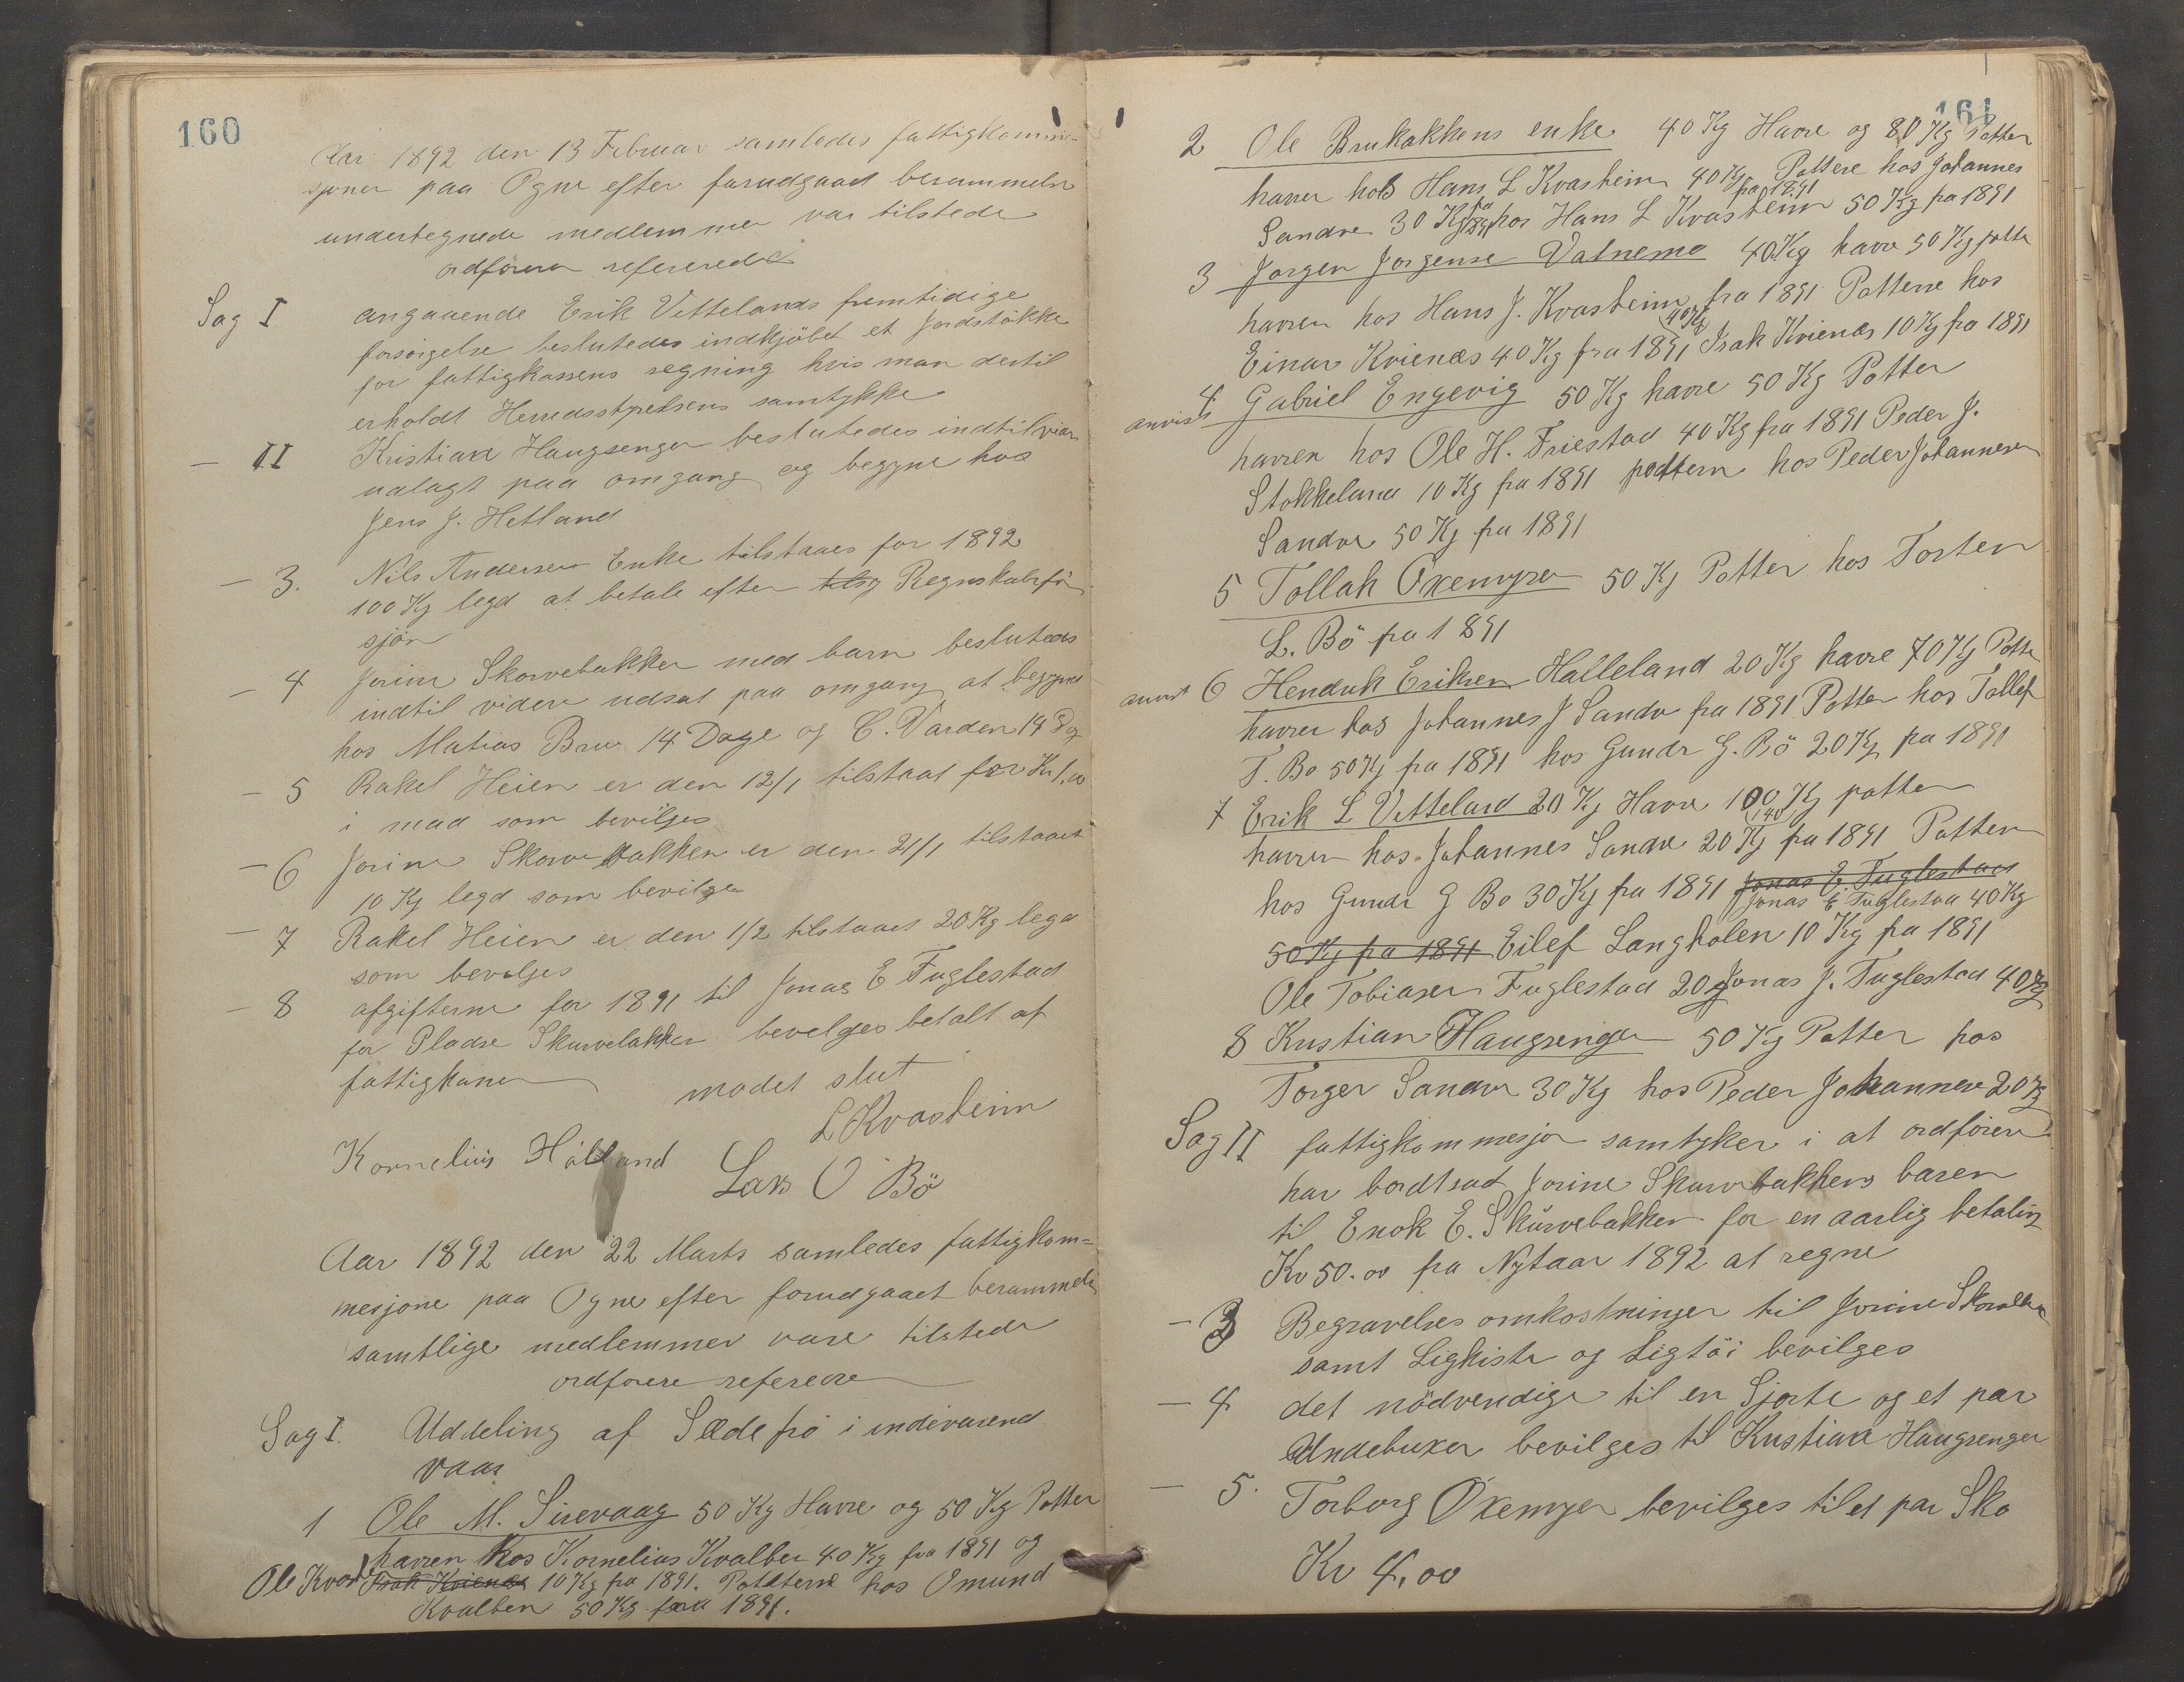 160
Aar 1892 den 13 Februar samledes fattigkommis-
sjonen paa Ogne efter forudgaad berammelse
undertegnede medlemmer var tilstede
ordförern refererede
Sag I angaaende Erik Vettelands fremtidige
forsörgelse beslutedes indkjöbet et Jordstökke
for fattigkassens regning hvis man dertil
erholdt Herredsstyrelsens samtykke
— II Kristian Haugsenger beslutedes indtil vidr
udlagt paa omgang og begyne hos
Jens J. Hetland
— 3. Nils Andersens Enke tilstaaes for 1892
100 Kg legd at betale efter tilsg Regnskabsför
sjön
— 4 Jorine Skarvebakken med barn besluteds
indtil videre udsat paa omgang at begyne
hos Matias Bru 14 Dage og C. Varden 14 Dag
— 5 Rakel Heien er den 12/1 tilstaat for Kr 1,00
i mad som bevilges
— 6 Jorine Skarvebakken er den 21/1 tilstaaet
10 Kg legd som bevilges
— 7 Rakel Heien er den 1/2 tilstaaet 20 Kg legd
som bevilges
— 8 afgifterne for 1891 til Jonas E Fuglestad
for Pladse Skarvebakken bevelges betalt af
fattigkassen
modet slut
L Kvasheim
Kornelius Hålland
Lars O Bö
Aar 1892 den 22 Marts samledes fattigkom=
mesjone paa Ogne efter forudgaaet berammelse
samtlige medlemmer vare tilstede
ordförere referere
Sag I. Uddeling af Sædefrö i indevarend
vaar
1 Ole M. Sirevaag 50 Kg Havre og 50 Kg Potter
havren hos Kornelius Kvalben 40 Kg fra 1891 og
Ole Kval Isak Kvienes 10 Kg fra 1891. Potterne hos Omund
Kvalben 50 Kg fra 1891.
161
2 Ole Brukakkens enke 40 Kg Havre og 80 Kg Potter
havren hos Hans L Kvasheim 40 Kg fra 1891 Pottere hos Johannes
Sandve 30 Kg fra 1891 hos Hans L Kvasheim 50 Kg fra 1891
3 Jorgen Jorgense Vatnemo 40 Kg havre 50 Kg potter
havren hos Hans J. Kvasheim 40 Kg fra 1891 Potterne hos
Einar Kvienes 40 Kg fra 1891 Isak Kvienes 10 Kg fra 1891
anvist 4 Gabriel Engevig 50 Kg havre 50 Kg Potter
havren hos Ole H. Friestad 40 Kg fra 1891 Peder J.
Stokkeland 10 Kg fra 1891 pottern hos Peder Johannesen
Sandve 50 Kg fra 1891
5 Tollak Oxemyren 50 Kg Potter hos Torsten
L. Bö fra 1891
anvist 6 Hendrik Eriksen Halleland 20 Kg havre 70 Kg Potter
havren hos Johannes J Sandve fra 1891 Potter hos Tollef
T. Bo 50 Kg fra 1891 hos Gundr G. Bö 20 Kg fra 1891
7 Erik L Vetteland 20 Kg Havre 100 Kg potter
140
havren hos Johannes Sandve 20 Kg fra 1891 Potten
hos Gundr G Bo 30 Kg fra 1891 Jonas E. Fuglestad
Jonas E Fuglestad 40 Kg
50 Kg fra 1891 Eilef Langholen 10 Kg fra 1891
Ole Tobiasen Fuglestad 20 Jonas J. Fuglestad 40 Kg
8 Kristian Haugsenger 50 Kg Potter hos
Torger Sandve 30 Kg hos Peder Johannese 20 Kg
Sag II fattigkommesjon samtyker i at ordföreren
har bordtsad Jorine Skarvebakkens baren
til Enok E. Skårvebakken for en aarlig betaling
Kr 50.00 fra Nytaar 1892 at regne
— 3 Begravelses omkostninger til Jorine Skarvebakken
samt Ligkiste og Ligtöi bevilges
— 4 det nödvendige til en Sjorte og et par
Undebuxer bevilges til Kristian Haugsenger
— 5. Torborg Oxemyren bevilges til et par Sko
Kr 4,00